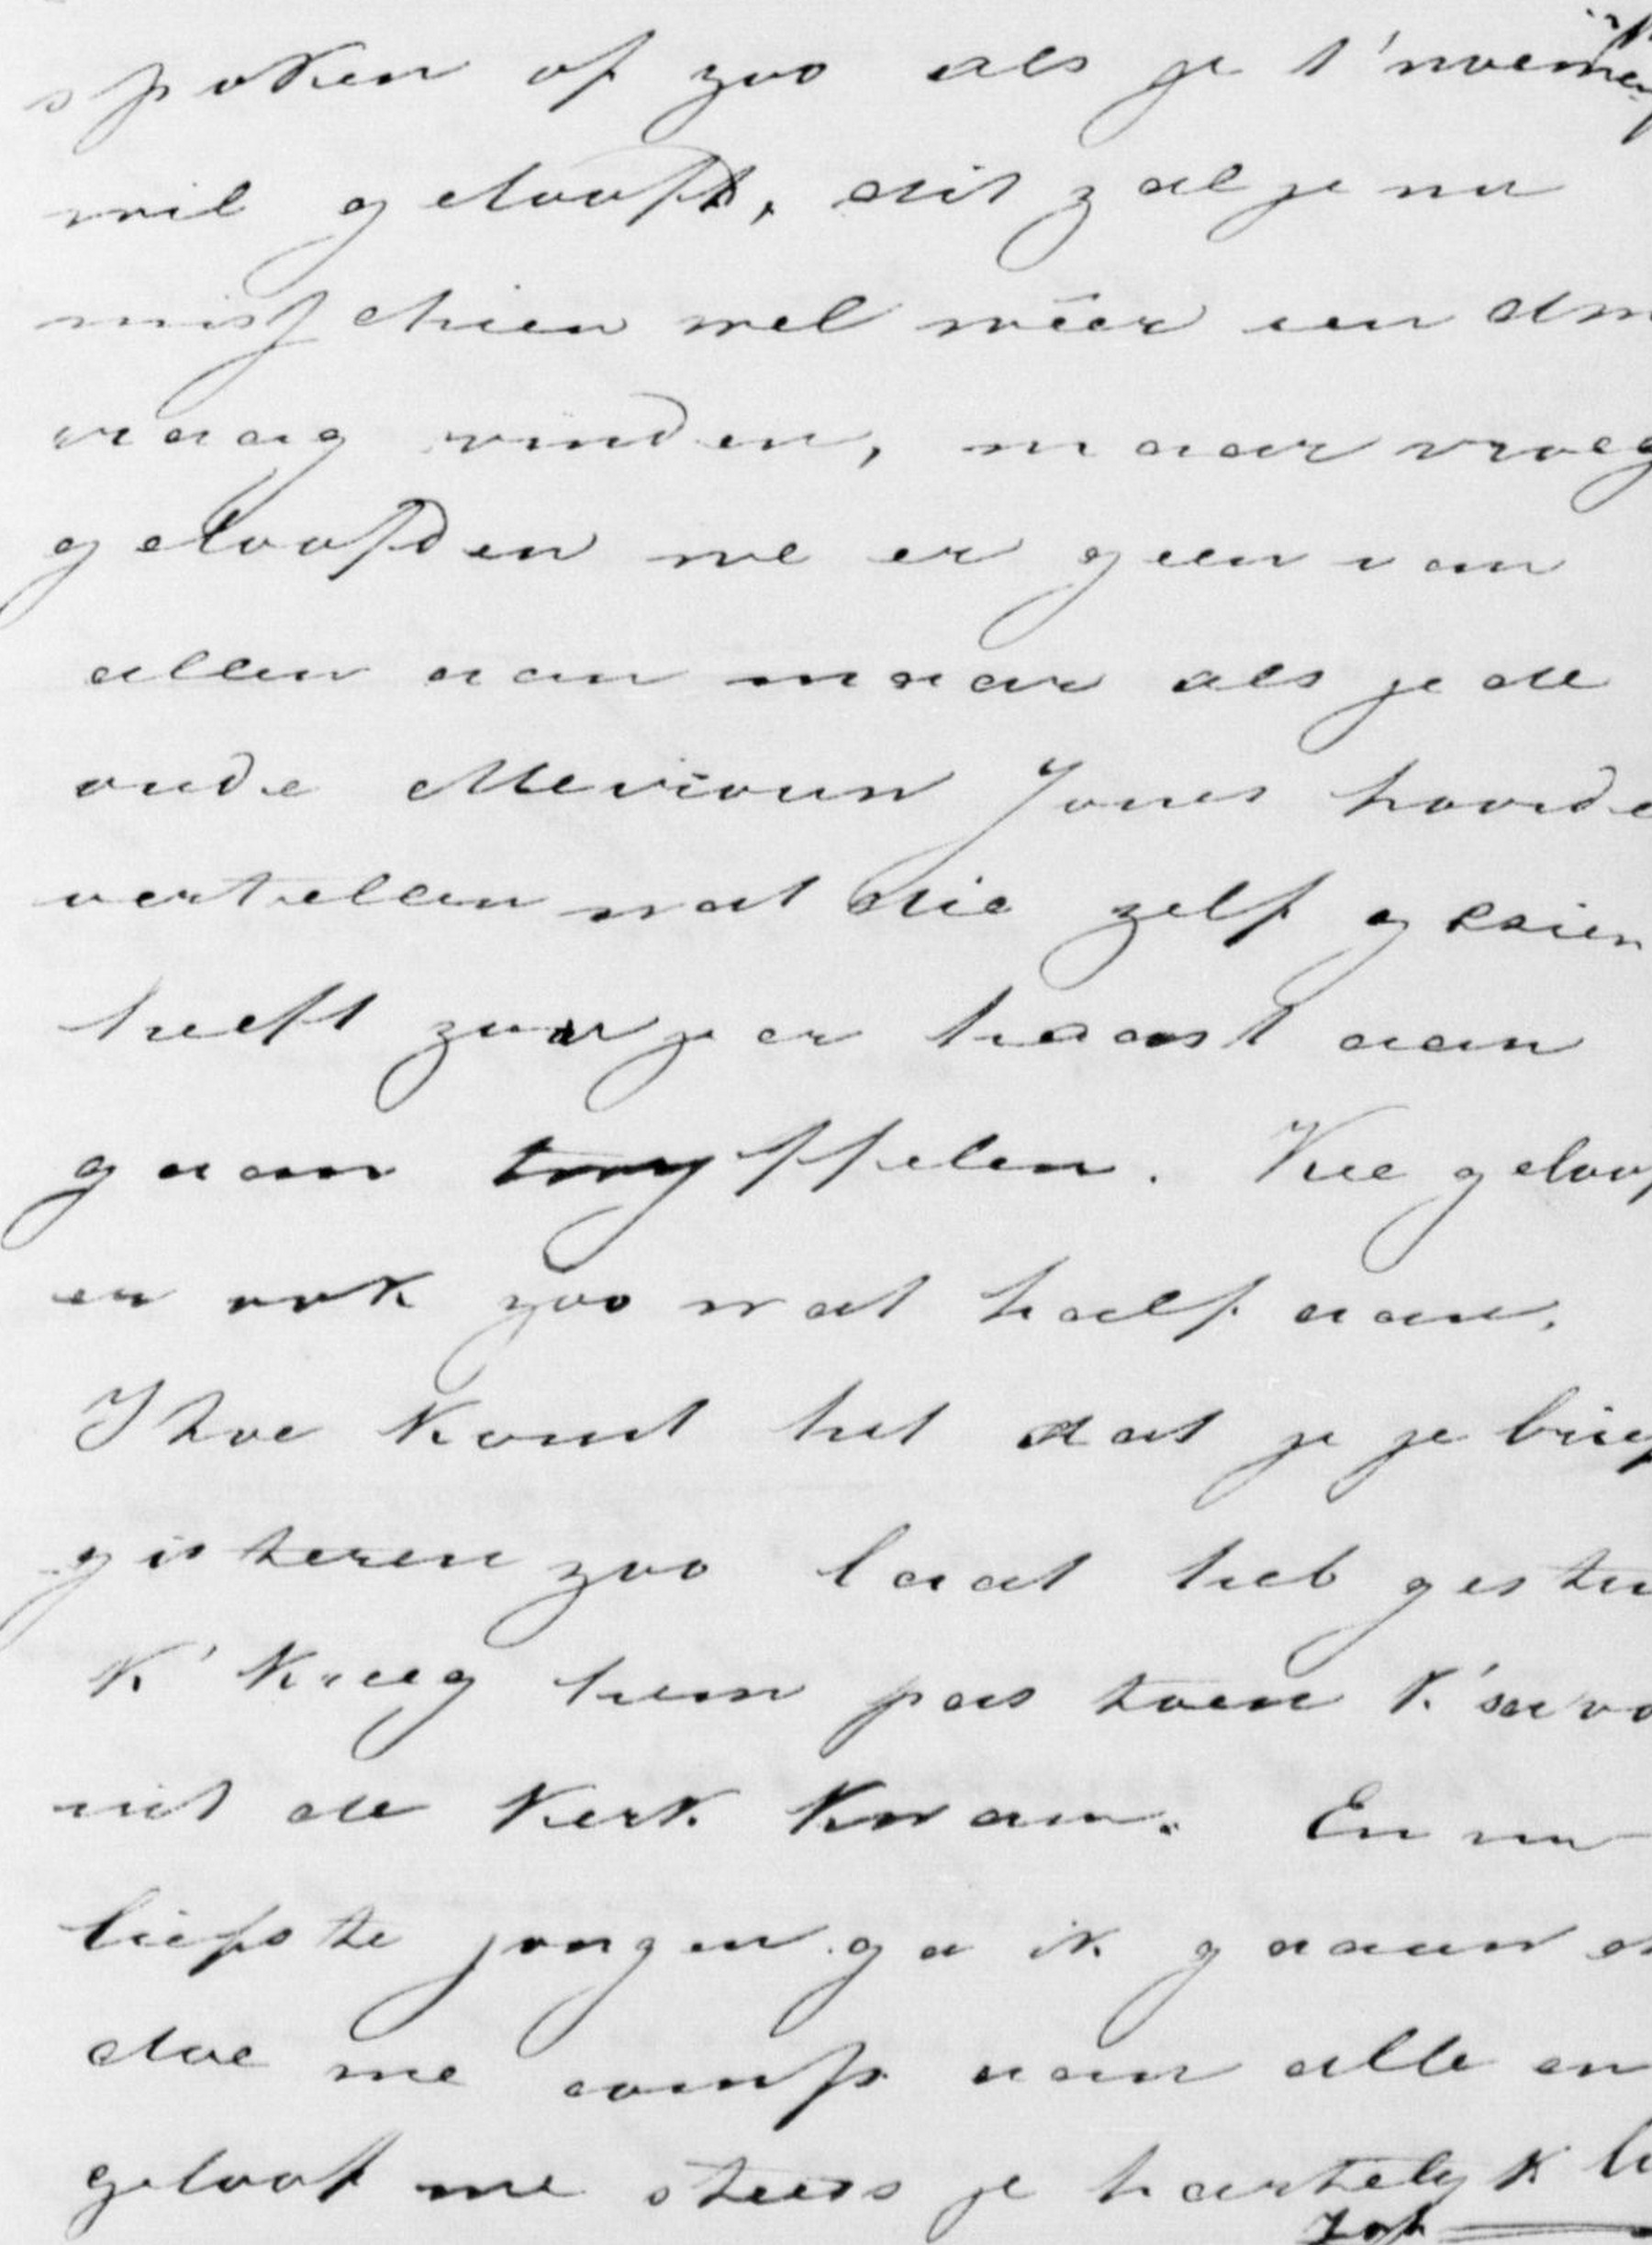 spoken of zoo als je t'noemen
wil gelooft, dit zal je nu
misschien wel wéér een dom
vraag vinden, maar vroeg
geloofden we er geen van
allen aan maar als je de
oude Mevrouw Jones hoorde
vertellen wat die zelf gezien
heeft zou je er haast aan
gaan twyffelen. Kee geloof
er ook zoo wat half aan.
Hoe komt het dat je je brief
gisteren zoo laat heb gestu
K' kreeg hem pas toen k'savo
uit de Kerk kwam. En nu
liefste jongen ga ik gaauw
doe me comp aan alle en
geloof me steeds je hartelyk